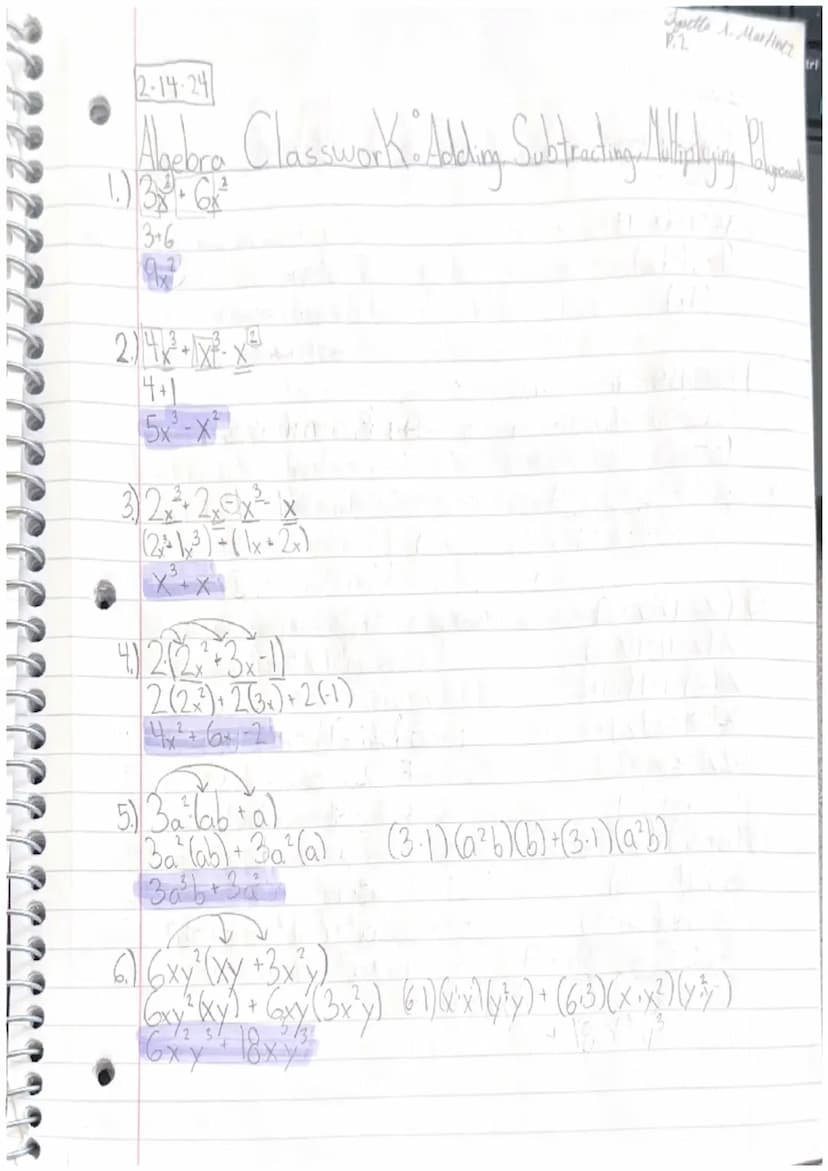 A. Martinez
P.2
2-14-24
Algebra Classwork: Adding, Subtracting, Multiplying Polynomials
1.) 3x² + 6x²
3+6
9x²
2.) 4x³ + 1x³ - x²
4+1
5x³ - x²
3.) 2x³ + 2x - 1x³ - 1x
(2x³ - 1x³) + (1x + 2x)
x³ + x
4.) 2(2x² + 3x - 1)
2(2x²) + 2(3x) + 2(-1)
4x² + 6x - 2
5.) 3a²(ab + a)
3a²(ab) + 3a²(a) (3·1)(a²b)(b) + (3·1)(a²b)
3a³b + 3a³
6.) 6xy²(xy + 3x²y)
6xy²(xy) + 6xy(3x²y) (6·1)(x·x)(y²y) + (6·3)(x·x²)(y²·y)
6x²y³ + 18x³y³